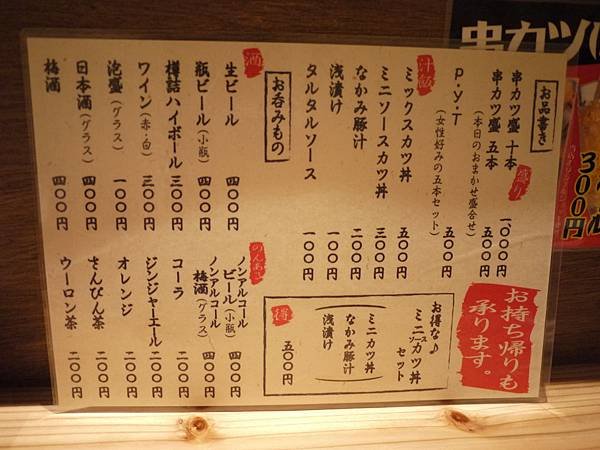 お品書き
盛り
串カツ盛 十本 一、〇〇〇円
串カツ盛 五本 五〇〇円
(本日のおまかせ盛合せ)
P・Y・T 五〇〇円
(女性好みの五本セット)
汁飯
ミックスカツ丼 五〇〇円
ミニソースカツ丼 三〇〇円
なかみ豚汁 二〇〇円
浅漬け 一〇〇円
タルタルソース 一〇〇円
お持ち帰りも
承ります。
お得な♪
ミニソースカツ丼
セット
ミニカツ丼
なかみ豚汁
浅漬け
得
五〇〇円
お呑みもの
酒
生ビール 四〇〇円
瓶ビール(小瓶) 四〇〇円
樽詰ハイボール 三〇〇円
ワイン(赤・白) 三〇〇円
泡盛(グラス) 一〇〇円
日本酒(グラス) 四〇〇円
梅酒 四〇〇円
のんある
ノンアルコール
ビール(小瓶) 四〇〇円
ノンアルコール
梅酒(グラス) 四〇〇円
コーラ 二〇〇円
ジンジャーエール 二〇〇円
オレンジ 二〇〇円
さんぴん茶 二〇〇円
ウーロン茶 二〇〇円
串カツ
300円